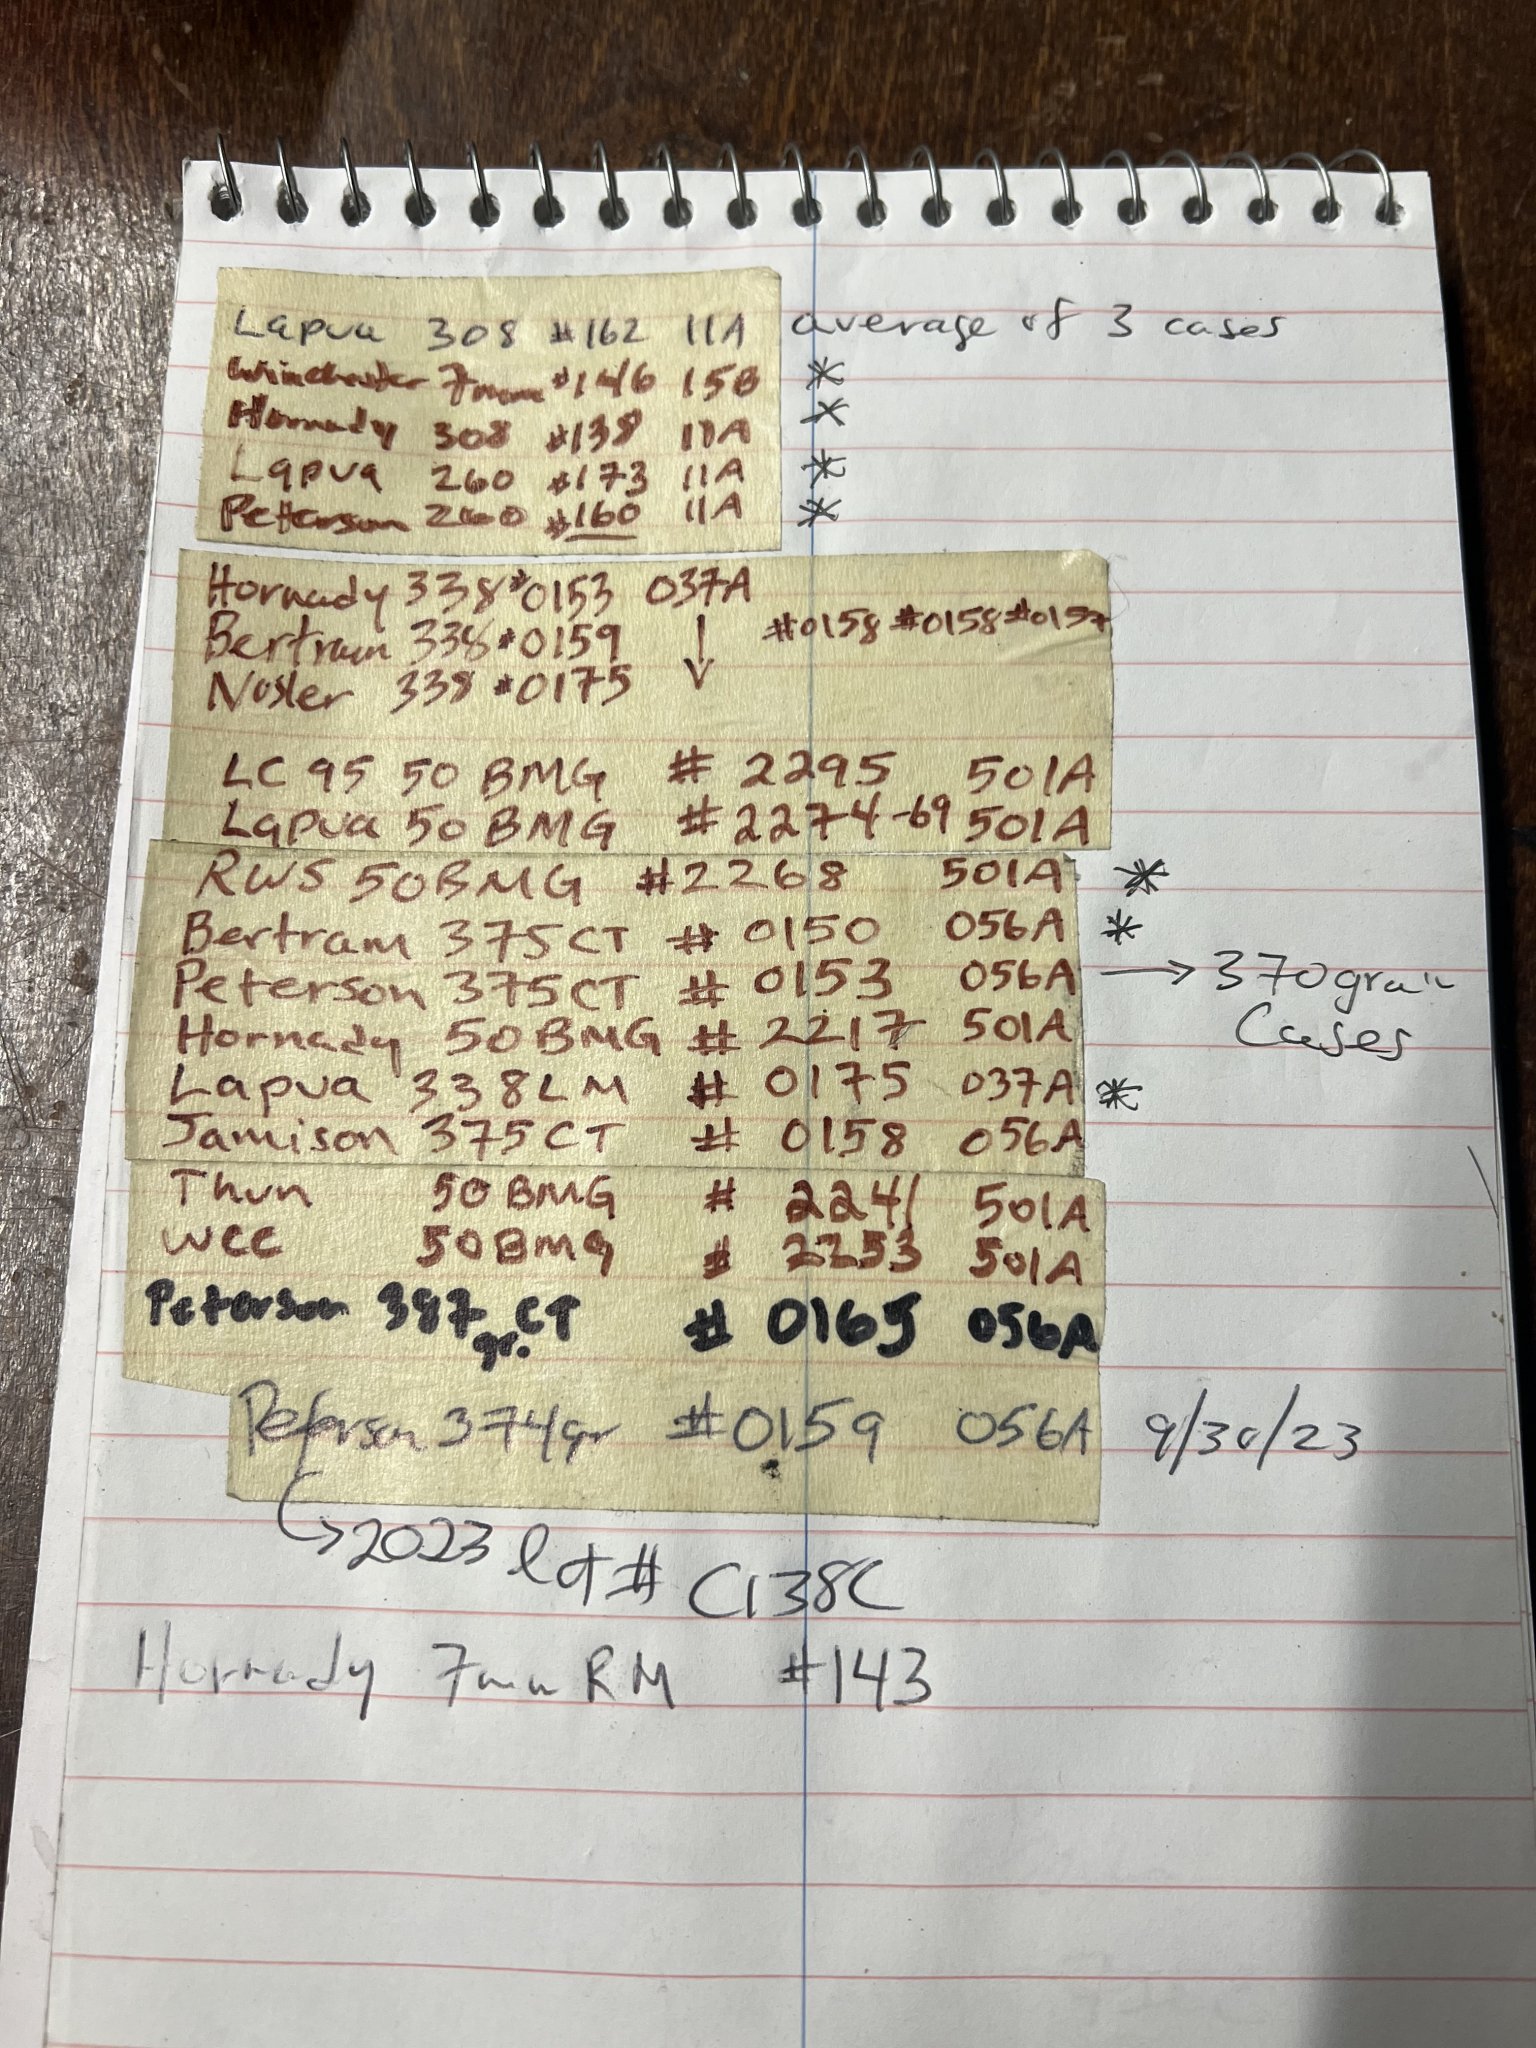 Lapua 308 #162 11A average of 3 cases
Winchester 7mm #146 15B *
Hornady 308 #138 11A *
Lapua 260 #173 11A *
Peterson 260 #160 11A *
Hornady 338 #0153 037A
Bertram 338 #0159 ↓ #0158 #0158 #0157
Nosler 338 #0175
LC 95 50 BMG # 2295 501A
Lapua 50 BMG # 2274-69 501A
RWS 50BMG #2268 501A *
Bertram 375CT # 0150 056A *
Peterson 375CT # 0153 056A → 370grain
Cases
Hornady 50BMG # 2217 501A
Lapua 338LM # 0175 037A *
Jamison 375CT # 0158 056A
Thun 50BMG # 2241 501A
WCC 50BMG # 2253 501A
Peterson 387gr. CT # 0165 056A
Peterson 374gr #0159 056A 9/30/23
→ 2023 lot# C138C
Hornady 7mm RM #143